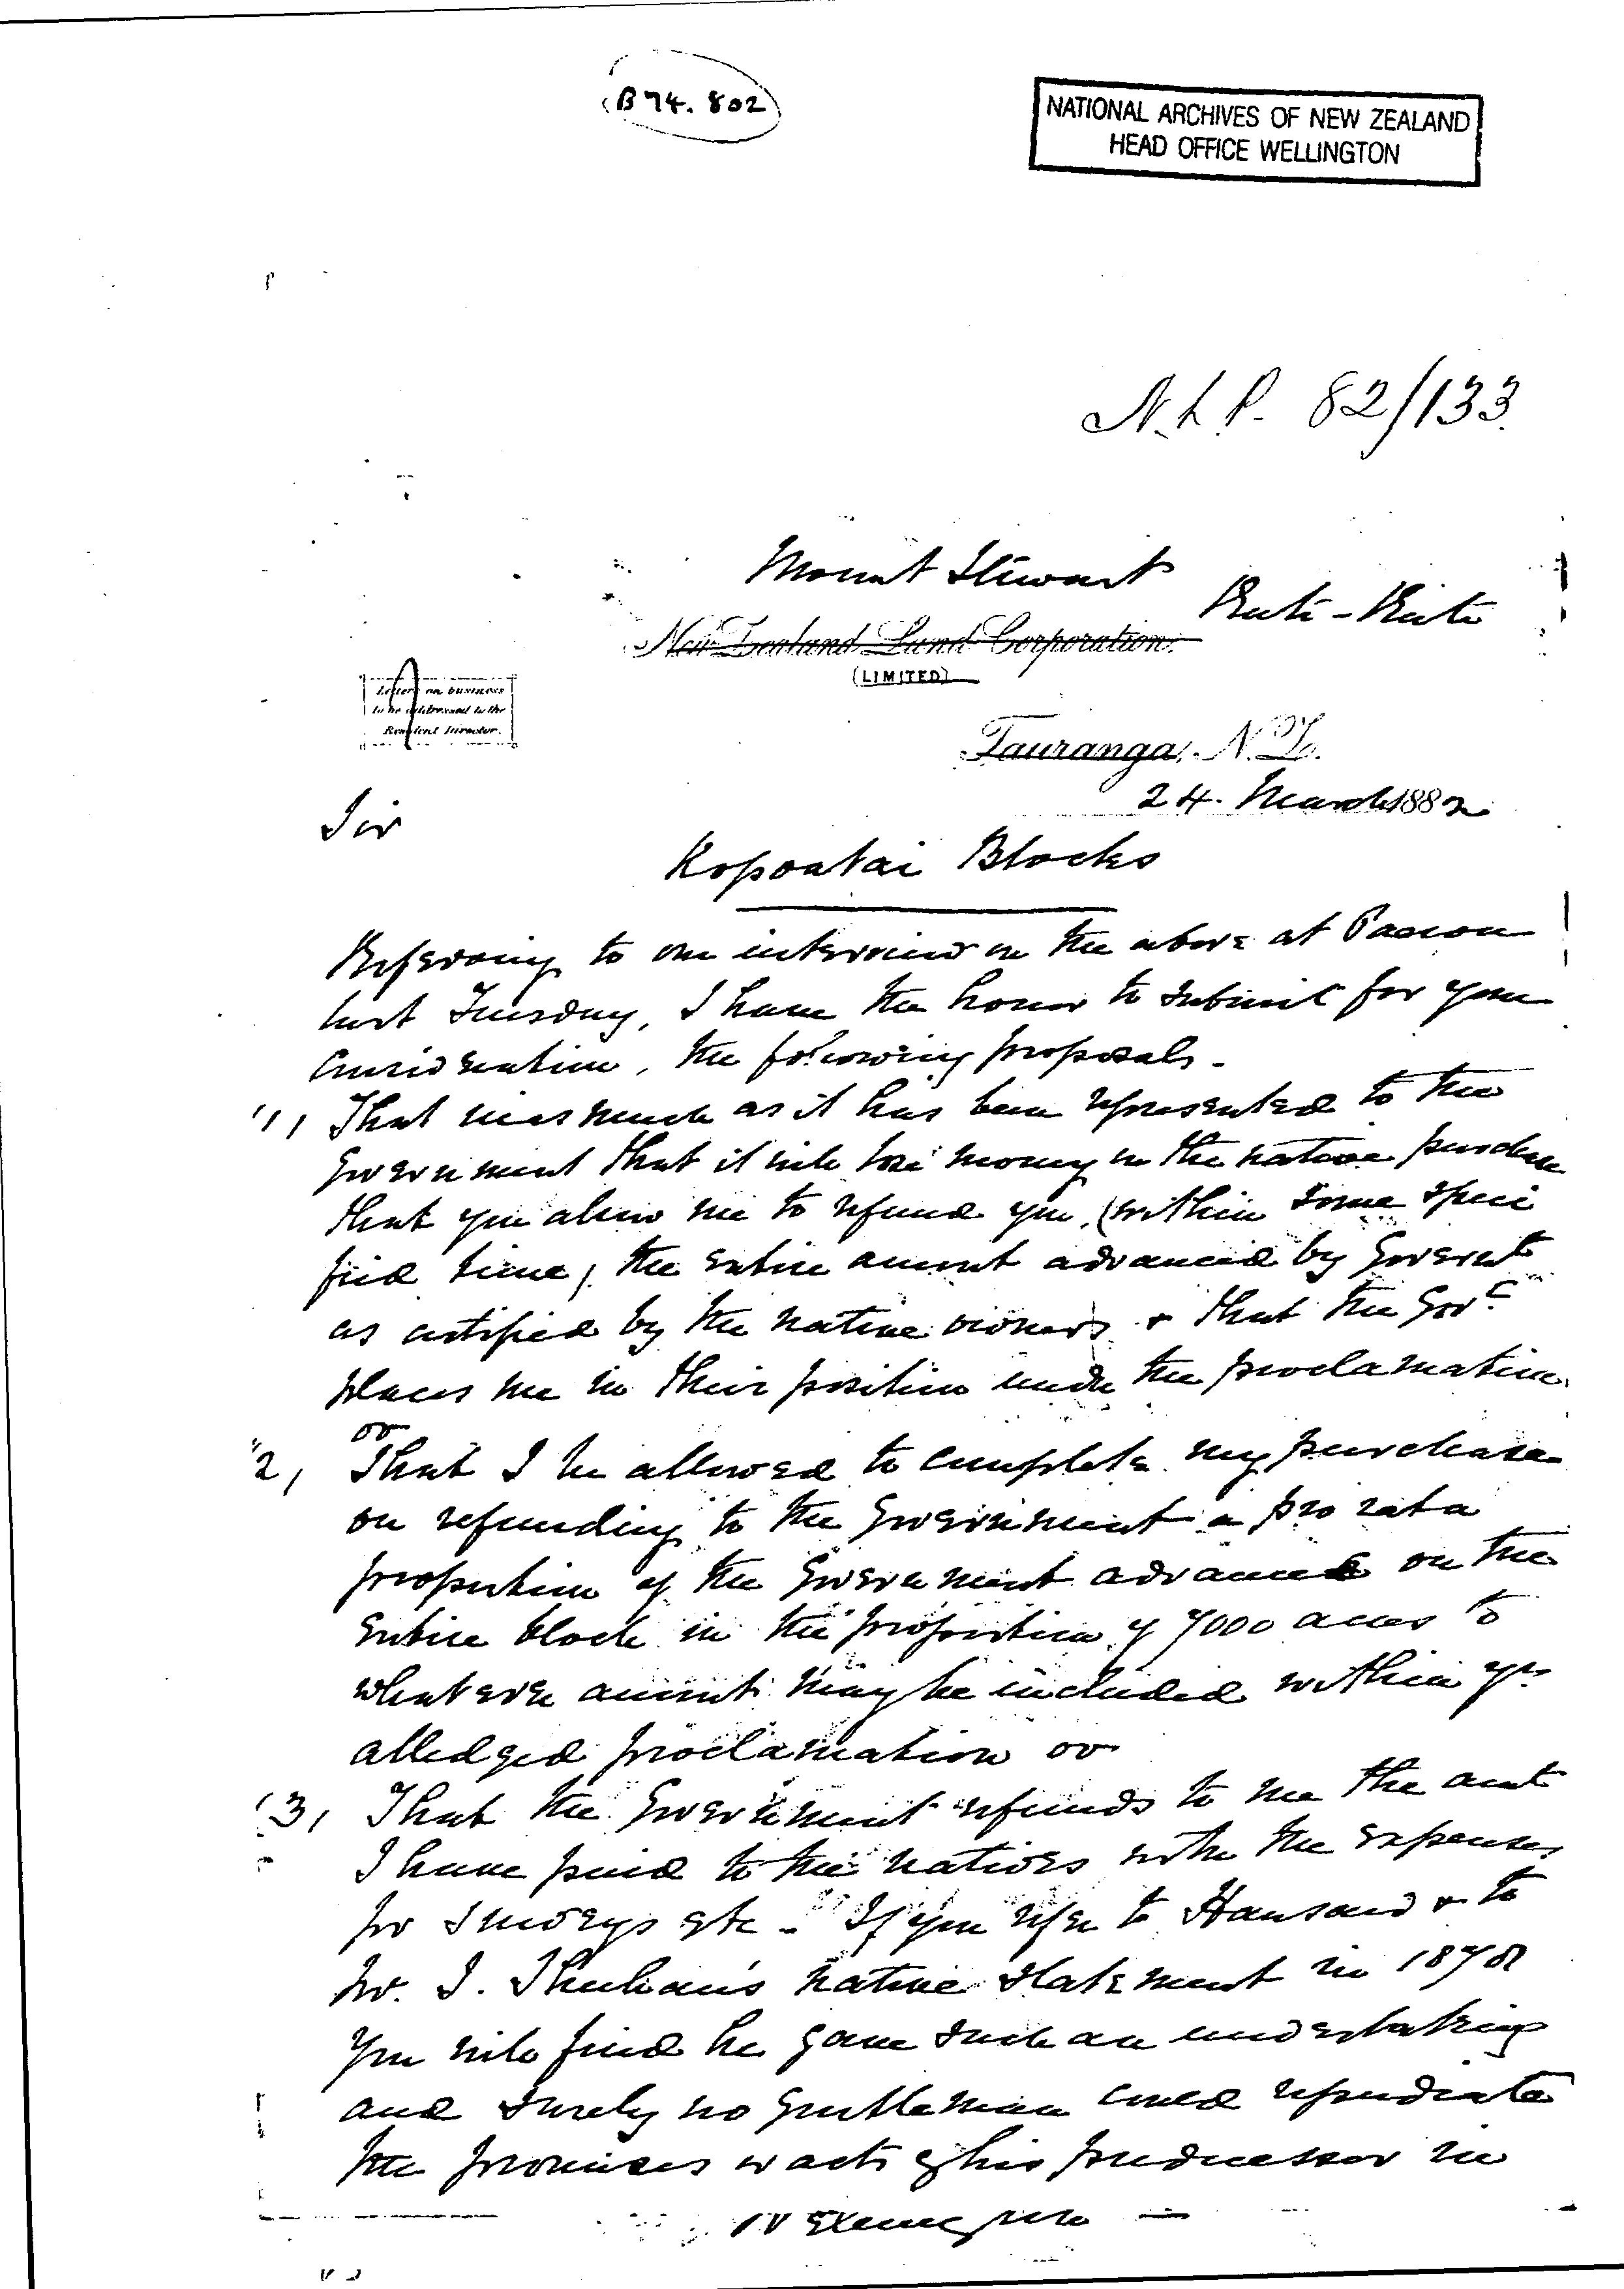 B 74. 802
NATIONAL ARCHIVES OF NEW ZEALAND
HEAD OFFICE WELLINGTON
N.L.P. 82/133
Mount Stewart
Kati-Kati
New Zealand Land Corporation
(LIMITED)
Letters on business
to be addressed to the
Resident Director.
Tauranga, N.Z.
24. March 1882
Sir
Kopoatai Blocks
Refering to our interview on the above at Paeroa
last Tuesday, I have the honor to submit for your
consideration, the following proposals -
(1) That inasmuch as it has been represented to the
Government that it will lose money on the native purchase
that you allow me to refund you, (within some speci
fied time) the entire amount advanced by Governt
as certified by the native owners & that the Govt
places me in their position under the proclamation
or
(2) That I be allowed to complete my purchase
on refunding to the Government a pro rata
proportion of the Government advances on the
entire block in the proportion of 7000 acres to
whatever amount may be included within yr
alledged proclamation or
(3) That the Government refunds to me the amt
I have paid to the natives with the expenses
for surveys etc - If you refer to Hansard & to
Mr. J. Sheehan's native statement in 1878
you will find he gave such an undertaking
and surely no gentleman could repudiate
the promises or acts of his predecessor in